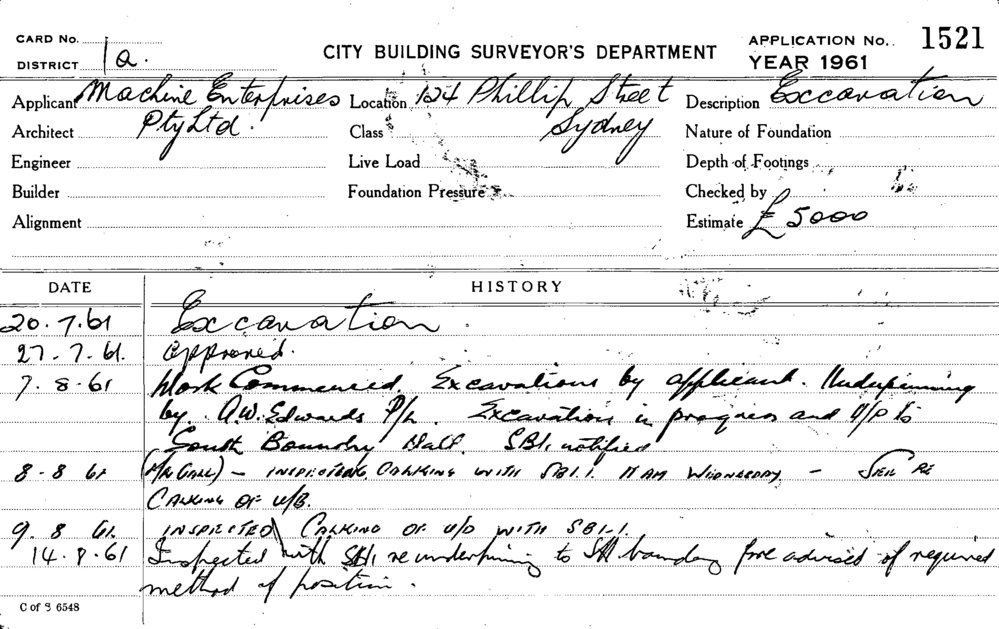 CARD No.
DISTRICT 1a.
CITY BUILDING SURVEYOR'S DEPARTMENT
APPLICATION No. 1521
YEAR 1961
Applicant Machine Enterprises Location 124 Phillip Street Description Excavation
Architect Pty Ltd. Class Sydney Nature of Foundation
Engineer Live Load Depth of Footings
Builder Foundation Pressure Checked by
Alignment Estimate £ 5000
DATE HISTORY
20.7.61 Excavation.
27-7-61. approved.
7-8-61 Work Commenced. Excavations by applicant. Underpinning
by A.W. Edwards P/L. Excavation in progress and U/P to
South Boundry Wall. SBI. notified
8-8 61 - WITH SBI.1. 11 AM WEDNESDAY - RE
OF
9. 8 61. INSPECTED OF WITH SBI-1.
14.8.61 Inspected with SBI, re underpinning to advised of required
method of position.
C of S 6548